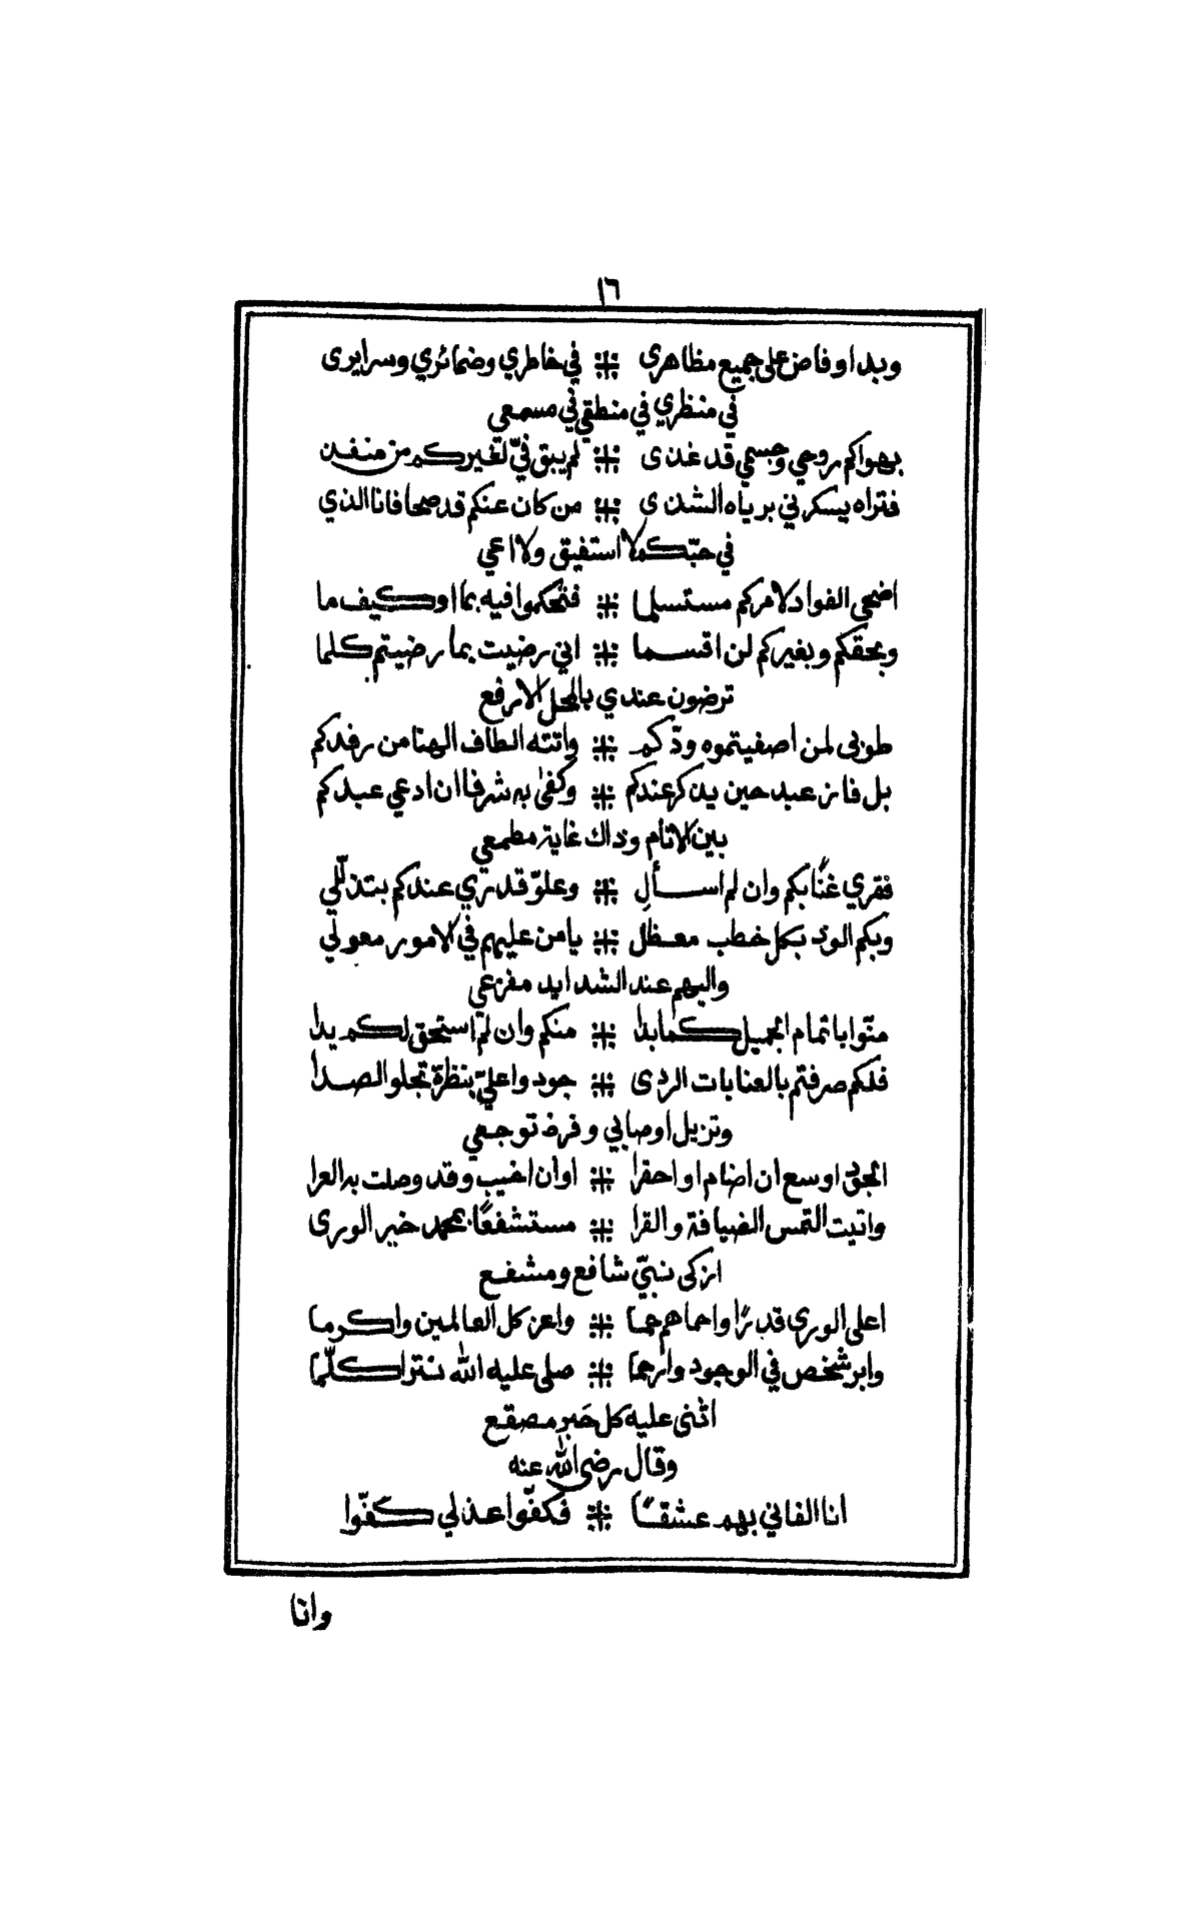 ١٦
وبدا وفاض على جميع مظاهرى ※ في خاطري وضمائري وسرايرى
في منظري في منطقي في مسمعي
بهواكم روحي وجسمي قد غذى ※ لم يبق فيّ لغيركم من منفذ
فتراه يسكرني برياه الشذى ※ من كان عنكم قد صحا فانا الذي
في حبّكم لا استفيق ولا اعي
اضحى الفواد لامركم مستسلما ※ فتحكموا فيه بما او كيف ما
وبحقكم وبغيركم لن اقسما ※ اني رضيت بما رضيتم كلما
ترضون عندي بالمحل الارفع
طوبى لمن اصفيتموه ودّكم ※ واتته الطاف الهنا من رفدكم
بل فاز عبد حين يذكر عندكم ※ وكفى به شرفا ان ادعي عبدكم
بين الانام وذاك غاية مطمعي
فقري غنًا بكم وان لم اسأل ※ وعلوّ قدري عندكم بتذلّلي
وبكم الوذ بكل خطب معظل ※ يا من عليهم في الامور معولي
واليهم عند الشدايد مفزعي
منّوا باتمام الجميل كما بدا ※ منكم وان لم استحق لكم يدا
فلكم صرفتم بالعنايات الردى ※ جودوا عليّ بنظرة تجلو الصدا
وتزيل اوصابي وفرط توجعي
الجود اوسع ان اضام او احقرا ※ او ان اخيب وقد وصلت به العرا
واتيت التمس الضيافة والقرا ※ مستشفعًا بمحمد خير الورى
ازكى نبيّ شافع ومشفع
اعلى الورى قدرًا واحماهم حما ※ واعز كل العالمين واكرما
وابر شخص في الوجود وارحما ※ صلى عليه الله تترا كلّما
اثنى عليه كل حَبرٍ مصقع
وقال رضى الله عنه
انا الفاني بهم عشقًا ※ فكفّوا عذلي كفّوا
وانا